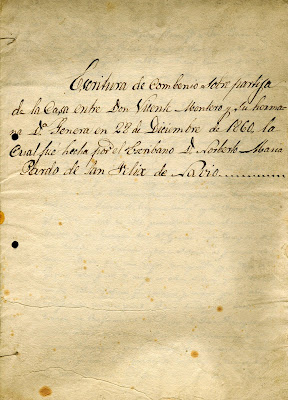 Escritura de combenio sobre partija
de la Casa entre Don Vicente Montero y Su herma-
na Dª Genera en 28 de Diciembre de 1860. la
Cual fué hecha por el Escribano D. Norberto Maria
Pardo de San Felix de